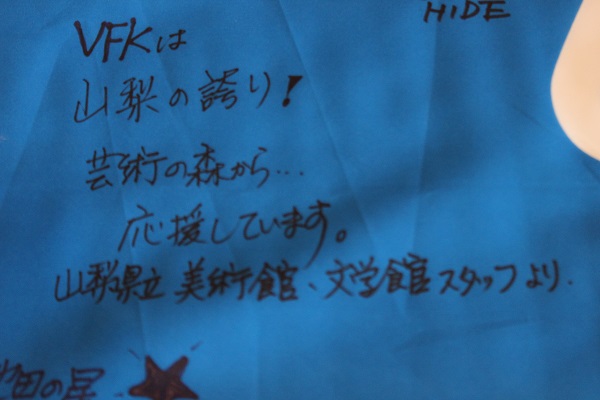 HIDE
VFKは
山梨の誇り!
芸術の森から...
応援しています。
山梨県立美術館、文学館スタッフより.
田の星